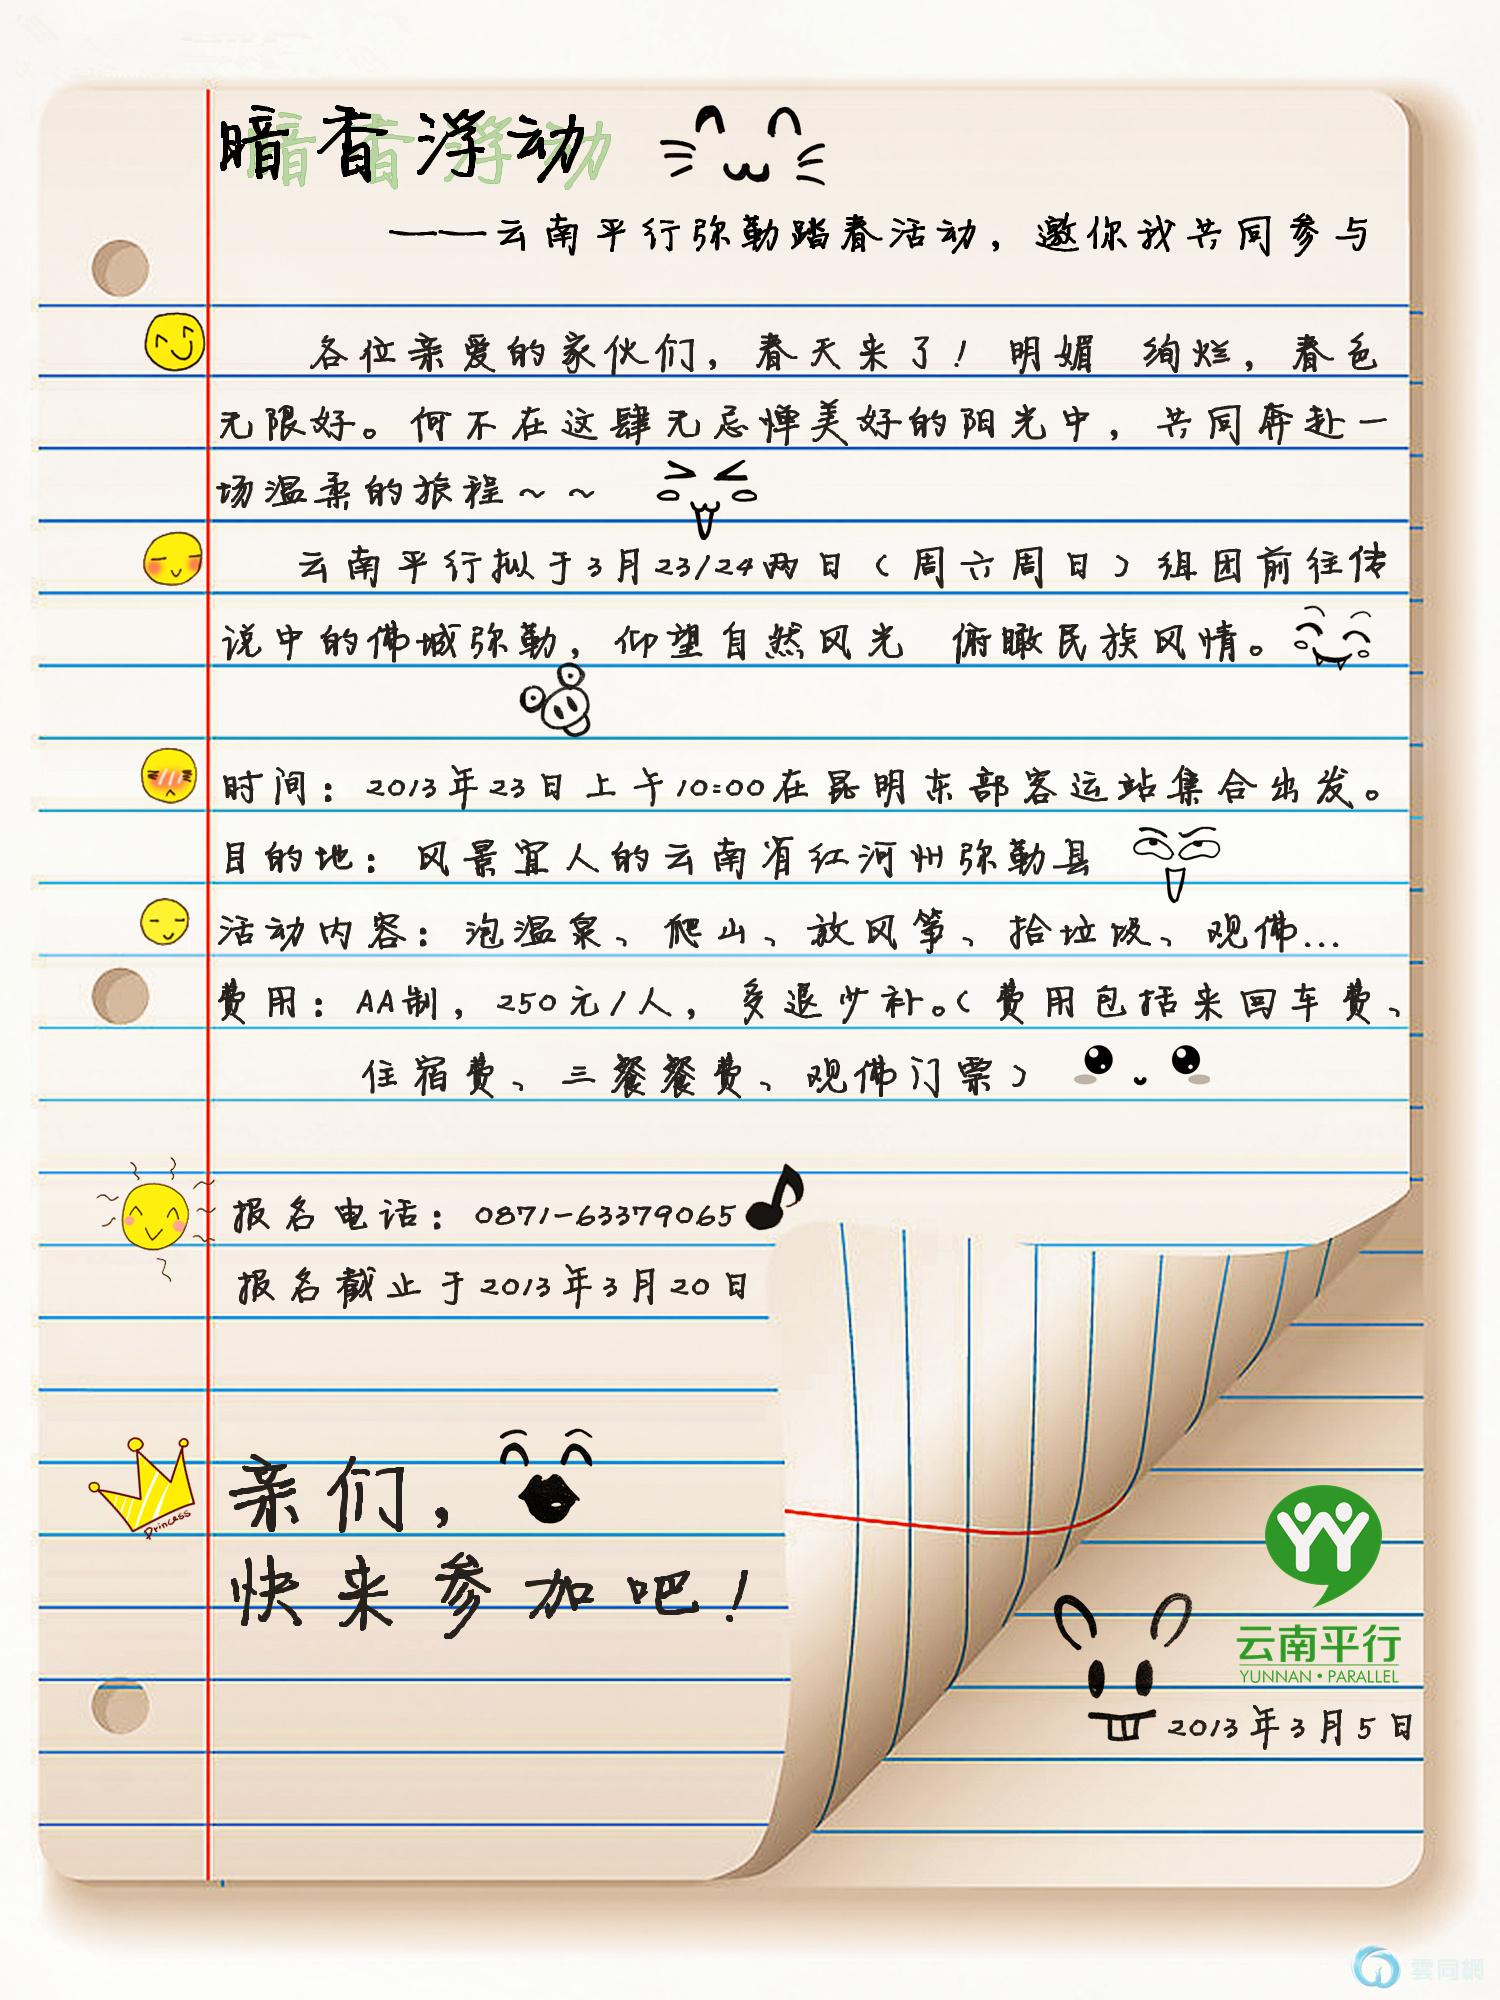 暗香浮动
——云南平行弥勒踏春活动，邀你我共同参与
各位亲爱的家伙们，春天来了！明媚 绚烂，春色
无限好。何不在这肆无忌惮美好的阳光中，共同奔赴一
场温柔的旅程～～
云南平行拟于3月23/24两日（周六周日）组团前往传
说中的佛城弥勒，仰望自然风光 俯瞰民族风情。
时间：2013年23日上午10:00在昆明东部客运站集合出发。
目的地：风景宜人的云南省红河州弥勒县
活动内容：泡温泉、爬山、放风筝、拾垃圾、观佛...
费用：AA制，250元/人，多退少补。（费用包括来回车费、
住宿费、三餐餐费、观佛门票）
报名电话：0871-63379065
报名截止于2013年3月20日
Princess
亲们，
快来参加吧！
YY
云南平行
YUNNAN·PARALLEL
2013年3月5日
雲同網